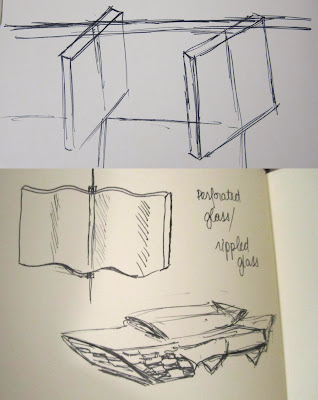 Perforated
glass/
rippled
glass